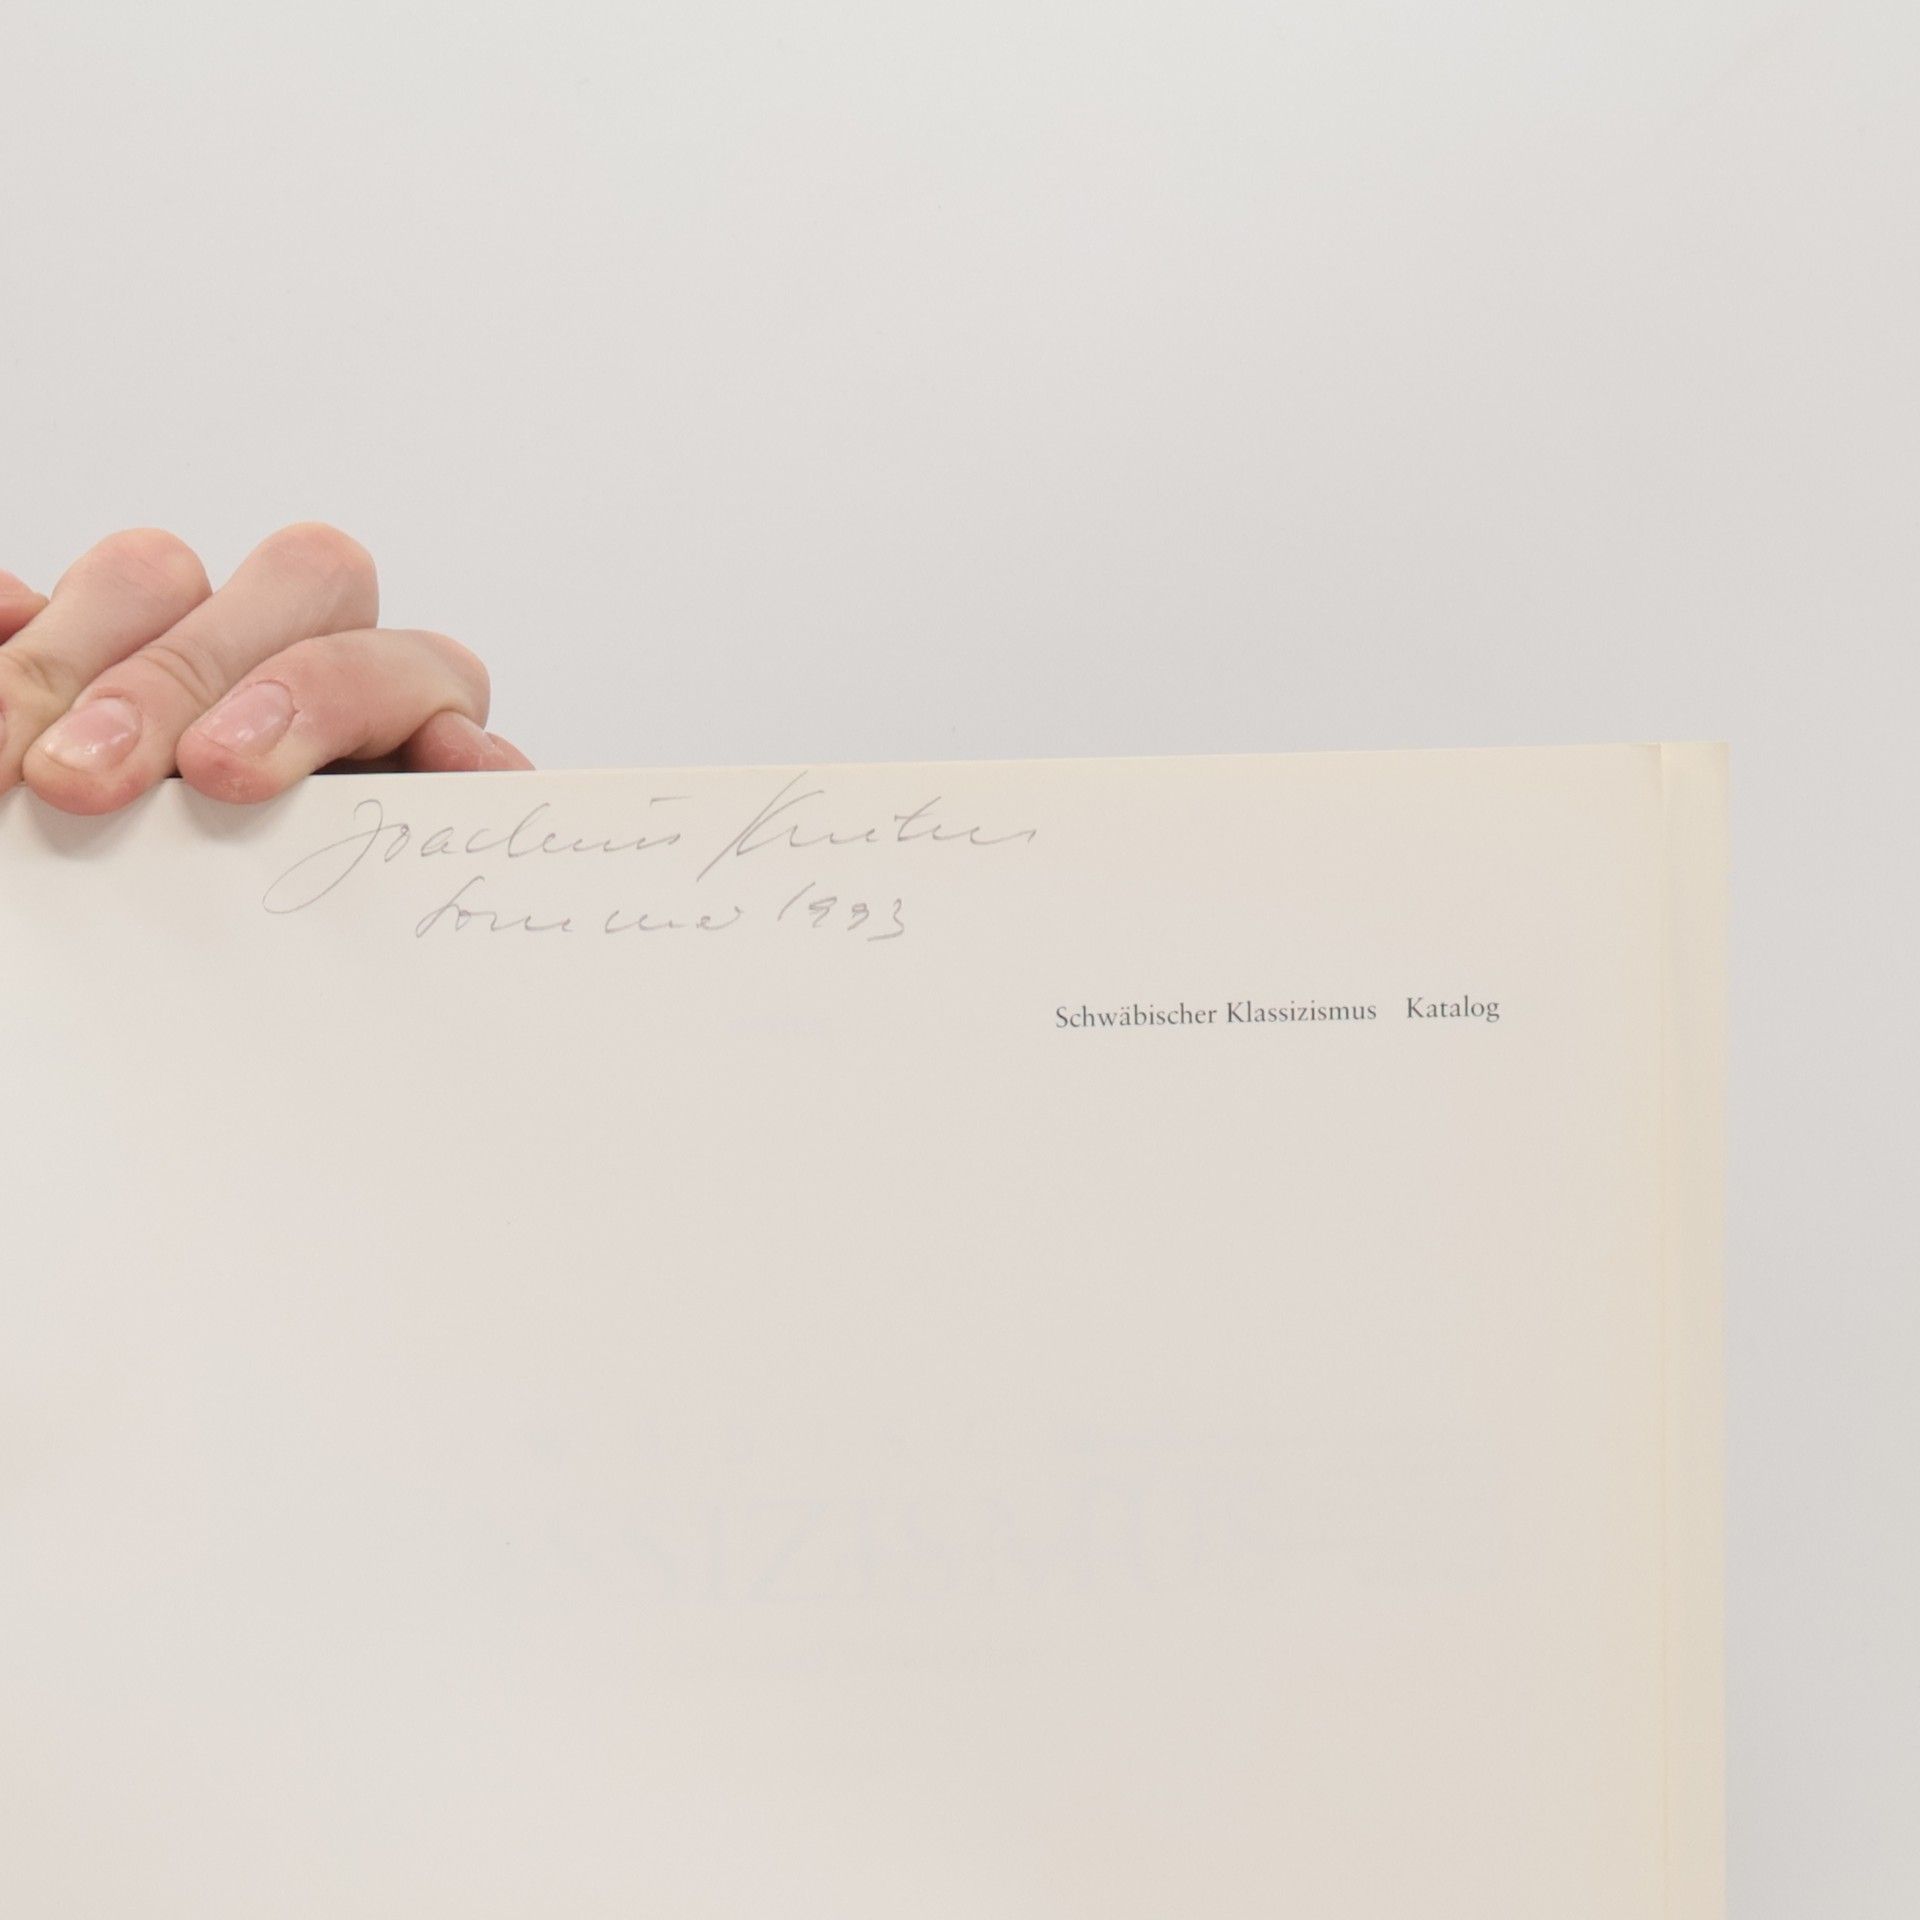 Joachim
Sommer 1993
Schwäbischer Klassizismus Katalog